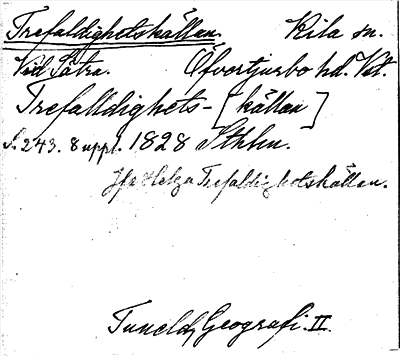 Trefaldighetskällan. Kila sn.
Vid Sätra. Öfvertjurbo hd. Vst.
Trefalldighets-[källan]
s. 243. 8 uppl. 1828 Sthlm.
Jfr Helga Trefaldighetskällan.
Tunelds Geografi. II.